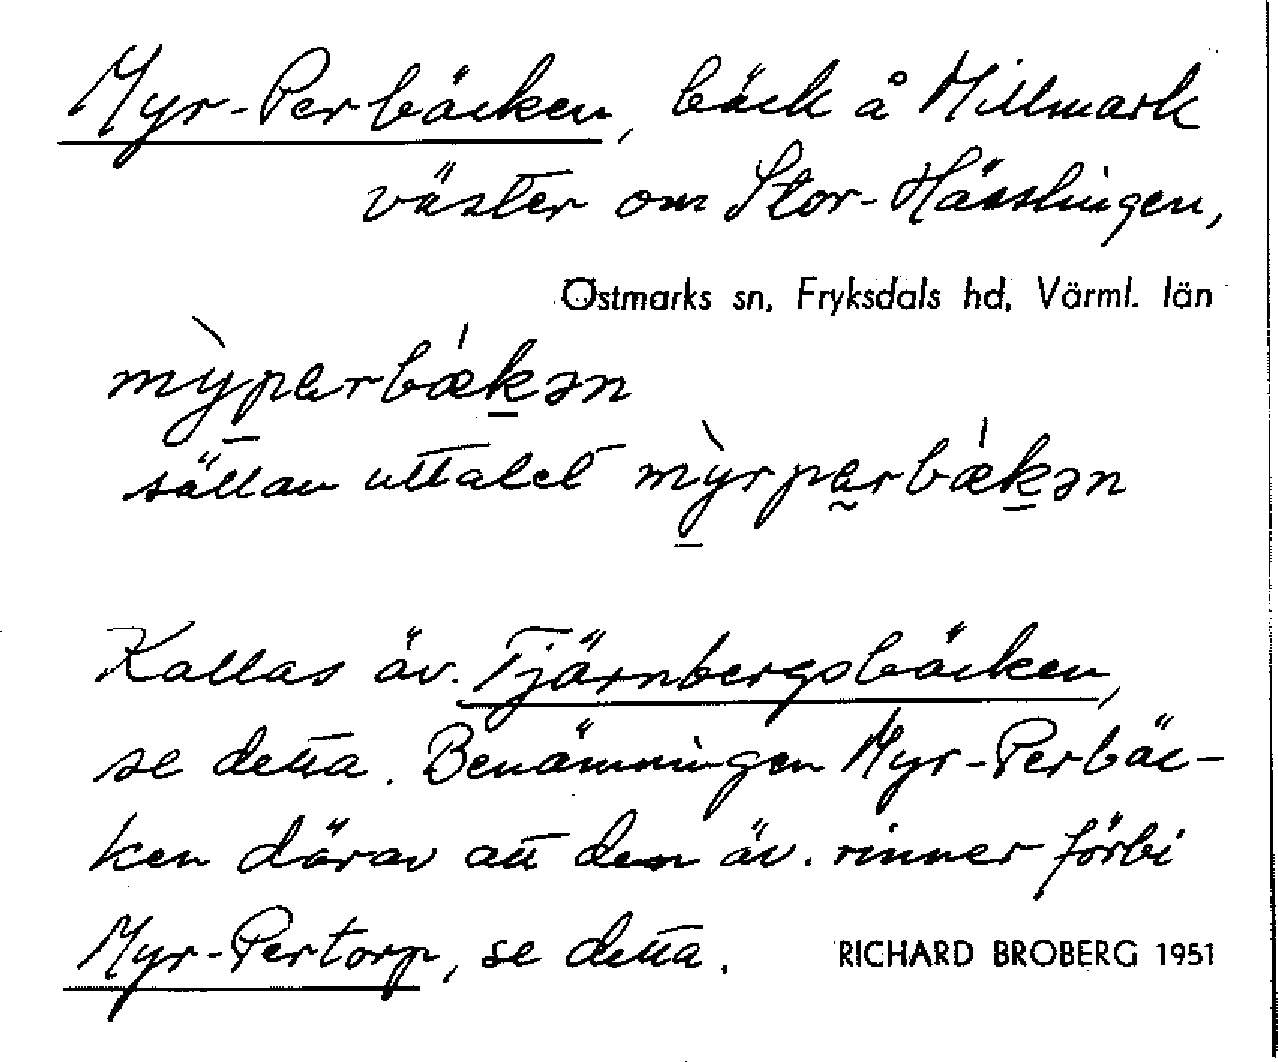 Myr-Perbäcken, bäck å Millmark
väster om Stor-Hässlingen,
Östmarks sn, Fryksdals hd, Värml. län
mỳpɐrbǽkən
sällan uttalet mỳrpɐrbǽkən
Kallas äv. Tjärnbergsbäcken,
se detta. Benämningen Myr-Perbäc-
ken därav att den äv. rinner förbi
Myr-Pertorp, se detta.
RICHARD BROBERG 1951